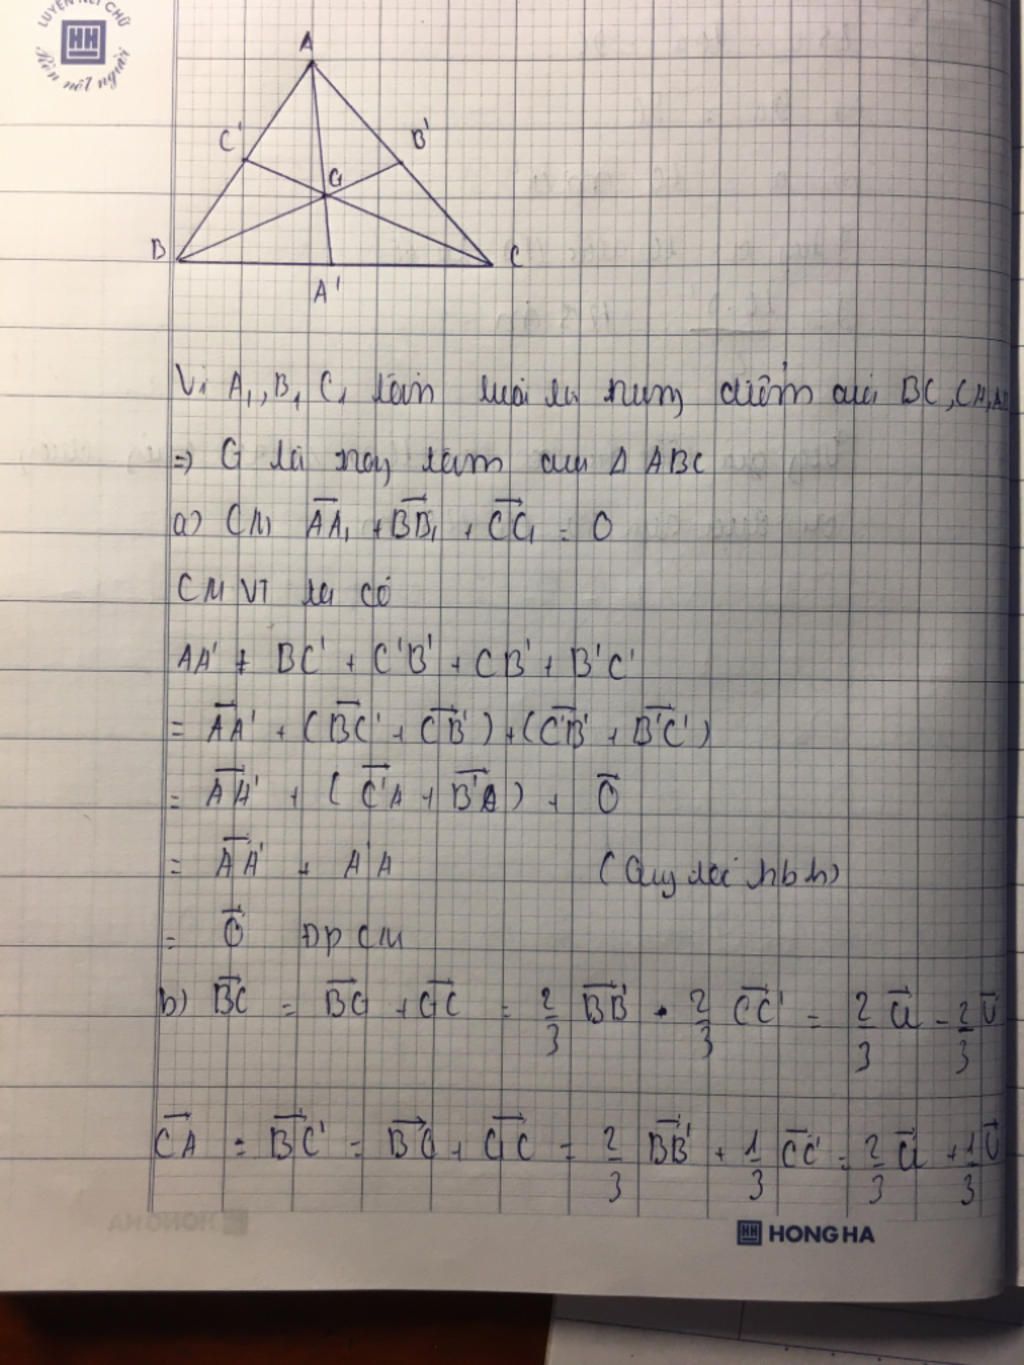 LUYỆN NÉT CHỮ
HH
Rèn nết người
A
C'
B'
G
B
C
A'
Vì A₁, B₁ C₁ lần lượt là trung điểm của BC, CA, AB
=> G là trọng tâm của Δ ABC
a) CM AA₁ + BB₁ + CC₁ = 0
CM VT ta có
AA' + BC' + C'B' + CB' + B'C'
= AA' + (BC' + CB') + (C'B' + B'C')
= AA' + (C'A + B'A) + 0
= AA' + A'A (Quy tắc hbh)
= 0 ĐPCM
b) BC = BG + GC = 2/3 BB' - 2/3 CC' = 2/3 u - 2/3 v
CA = BC' = BG + GC = 2/3 BB' + 1/3 CC' = 2/3 u + 1/3 v
HH HONG HA